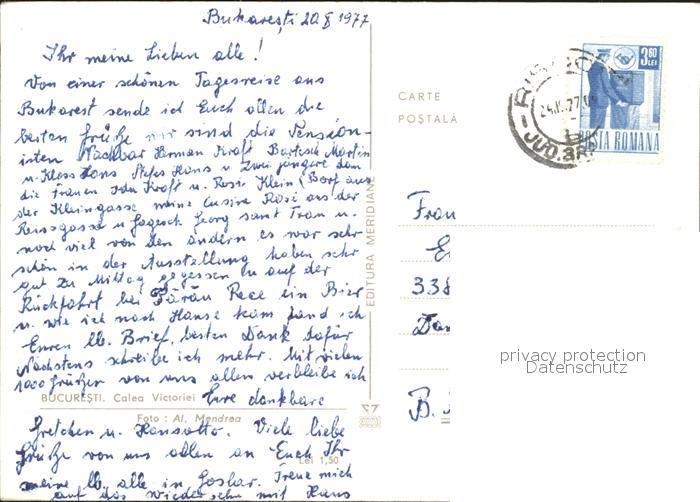 Bukarești 20 X 1977
Ihr meine Lieben alle!
Von einer schönen Tagesreise aus
Bukarest sende ich Euch allen die
besten Grüße wir sind die Pension-
isten Nachbar Herman Kraft Bartesch Martin
u. Kloss Hans Stefes Hans u. zwei jüngere dan
die Frauen Ida Kraft u. Rosi Klein (Borf aus
der Kleingasse meine Cusine Rosi aus der
Reissgasse u. Georg samt Frau u.
noch viel von den andern es war sehr
schön in der Ausstellung haben sehr
gut zu Mittag gegessen u auf der
Rückfahrt bei Părău Rece ein Bier
u. wie ich nach Hause kam fand ich
Euren lb. Brief, besten Dank dafür
Nächstens schreibe ich mehr. Mit vielen
1000 Grüßen von uns allen verbleibe ich
BUCUREȘTI. Calea Victoriei Eure dankbare
Foto : Al. Mendrea
Gretchen u. Hansotto. Viele liebe
Grüße von uns allen an Euch Ihr
Lei 1,50
meine lb. alle in Goslar. Freue mich
auf das wiedersehn mit Hans
EDITURA MERIDIANE
CARTE
POȘTALĂ
3,60
LEI
POSTA ROMANA
JUD. BR
Frau
338
B.
privacy protection
Datenschutz